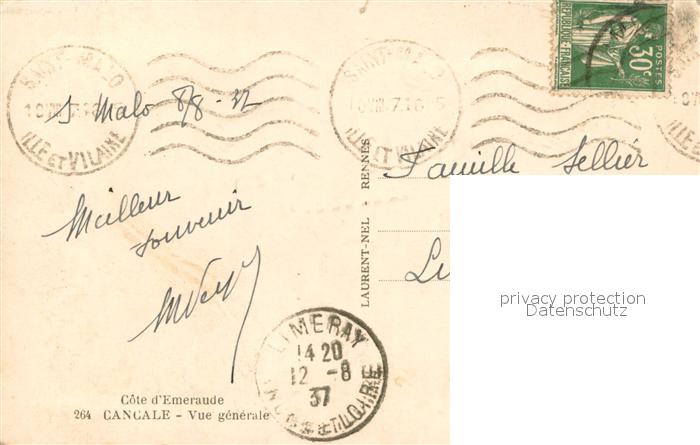 SAINT-MALO
ILLE ET VILAINE
SAINT-MALO
ILLE ET VILAINE
REPUBLIQUE FRANÇAISE
POSTES
30c
St Malo 8/8-37
Famille Sellier
Meilleur
souvenir
LAURENT-NEL - RENNES
privacy protection
Datenschutz
LIMERAY
14 20
12 -8
37
INDRE ET LOIRE
Côte d'Emeraude
264 CANCALE - Vue générale